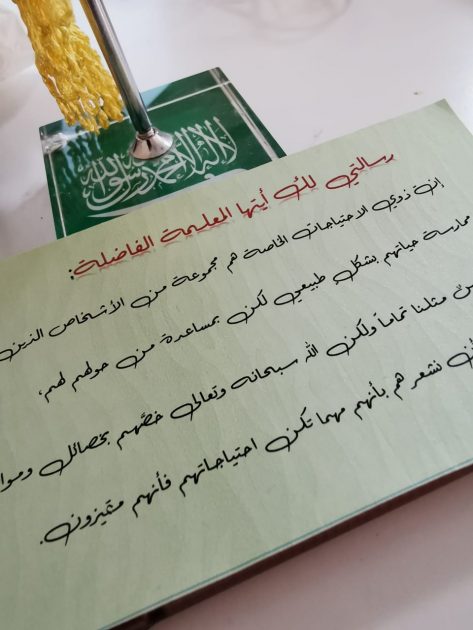 لا إله إلا الله محمد رسول الله
رسالتي لك أيتها المعلمة الفاضلة:
إن ذوي الاحتياجات الخاصة هم مجموعة من الأشخاص الذين
ممارسة حياتهم بشكلٍ طبيعي لكن بمساعدة من حولهم لهم،
مثلنا تماماً ولكن الله سبحانه وتعالى خصَّهم بخصائل
نشعر هم بأنهم مهما تكن احتياجاتهم فأنهم متميزون.